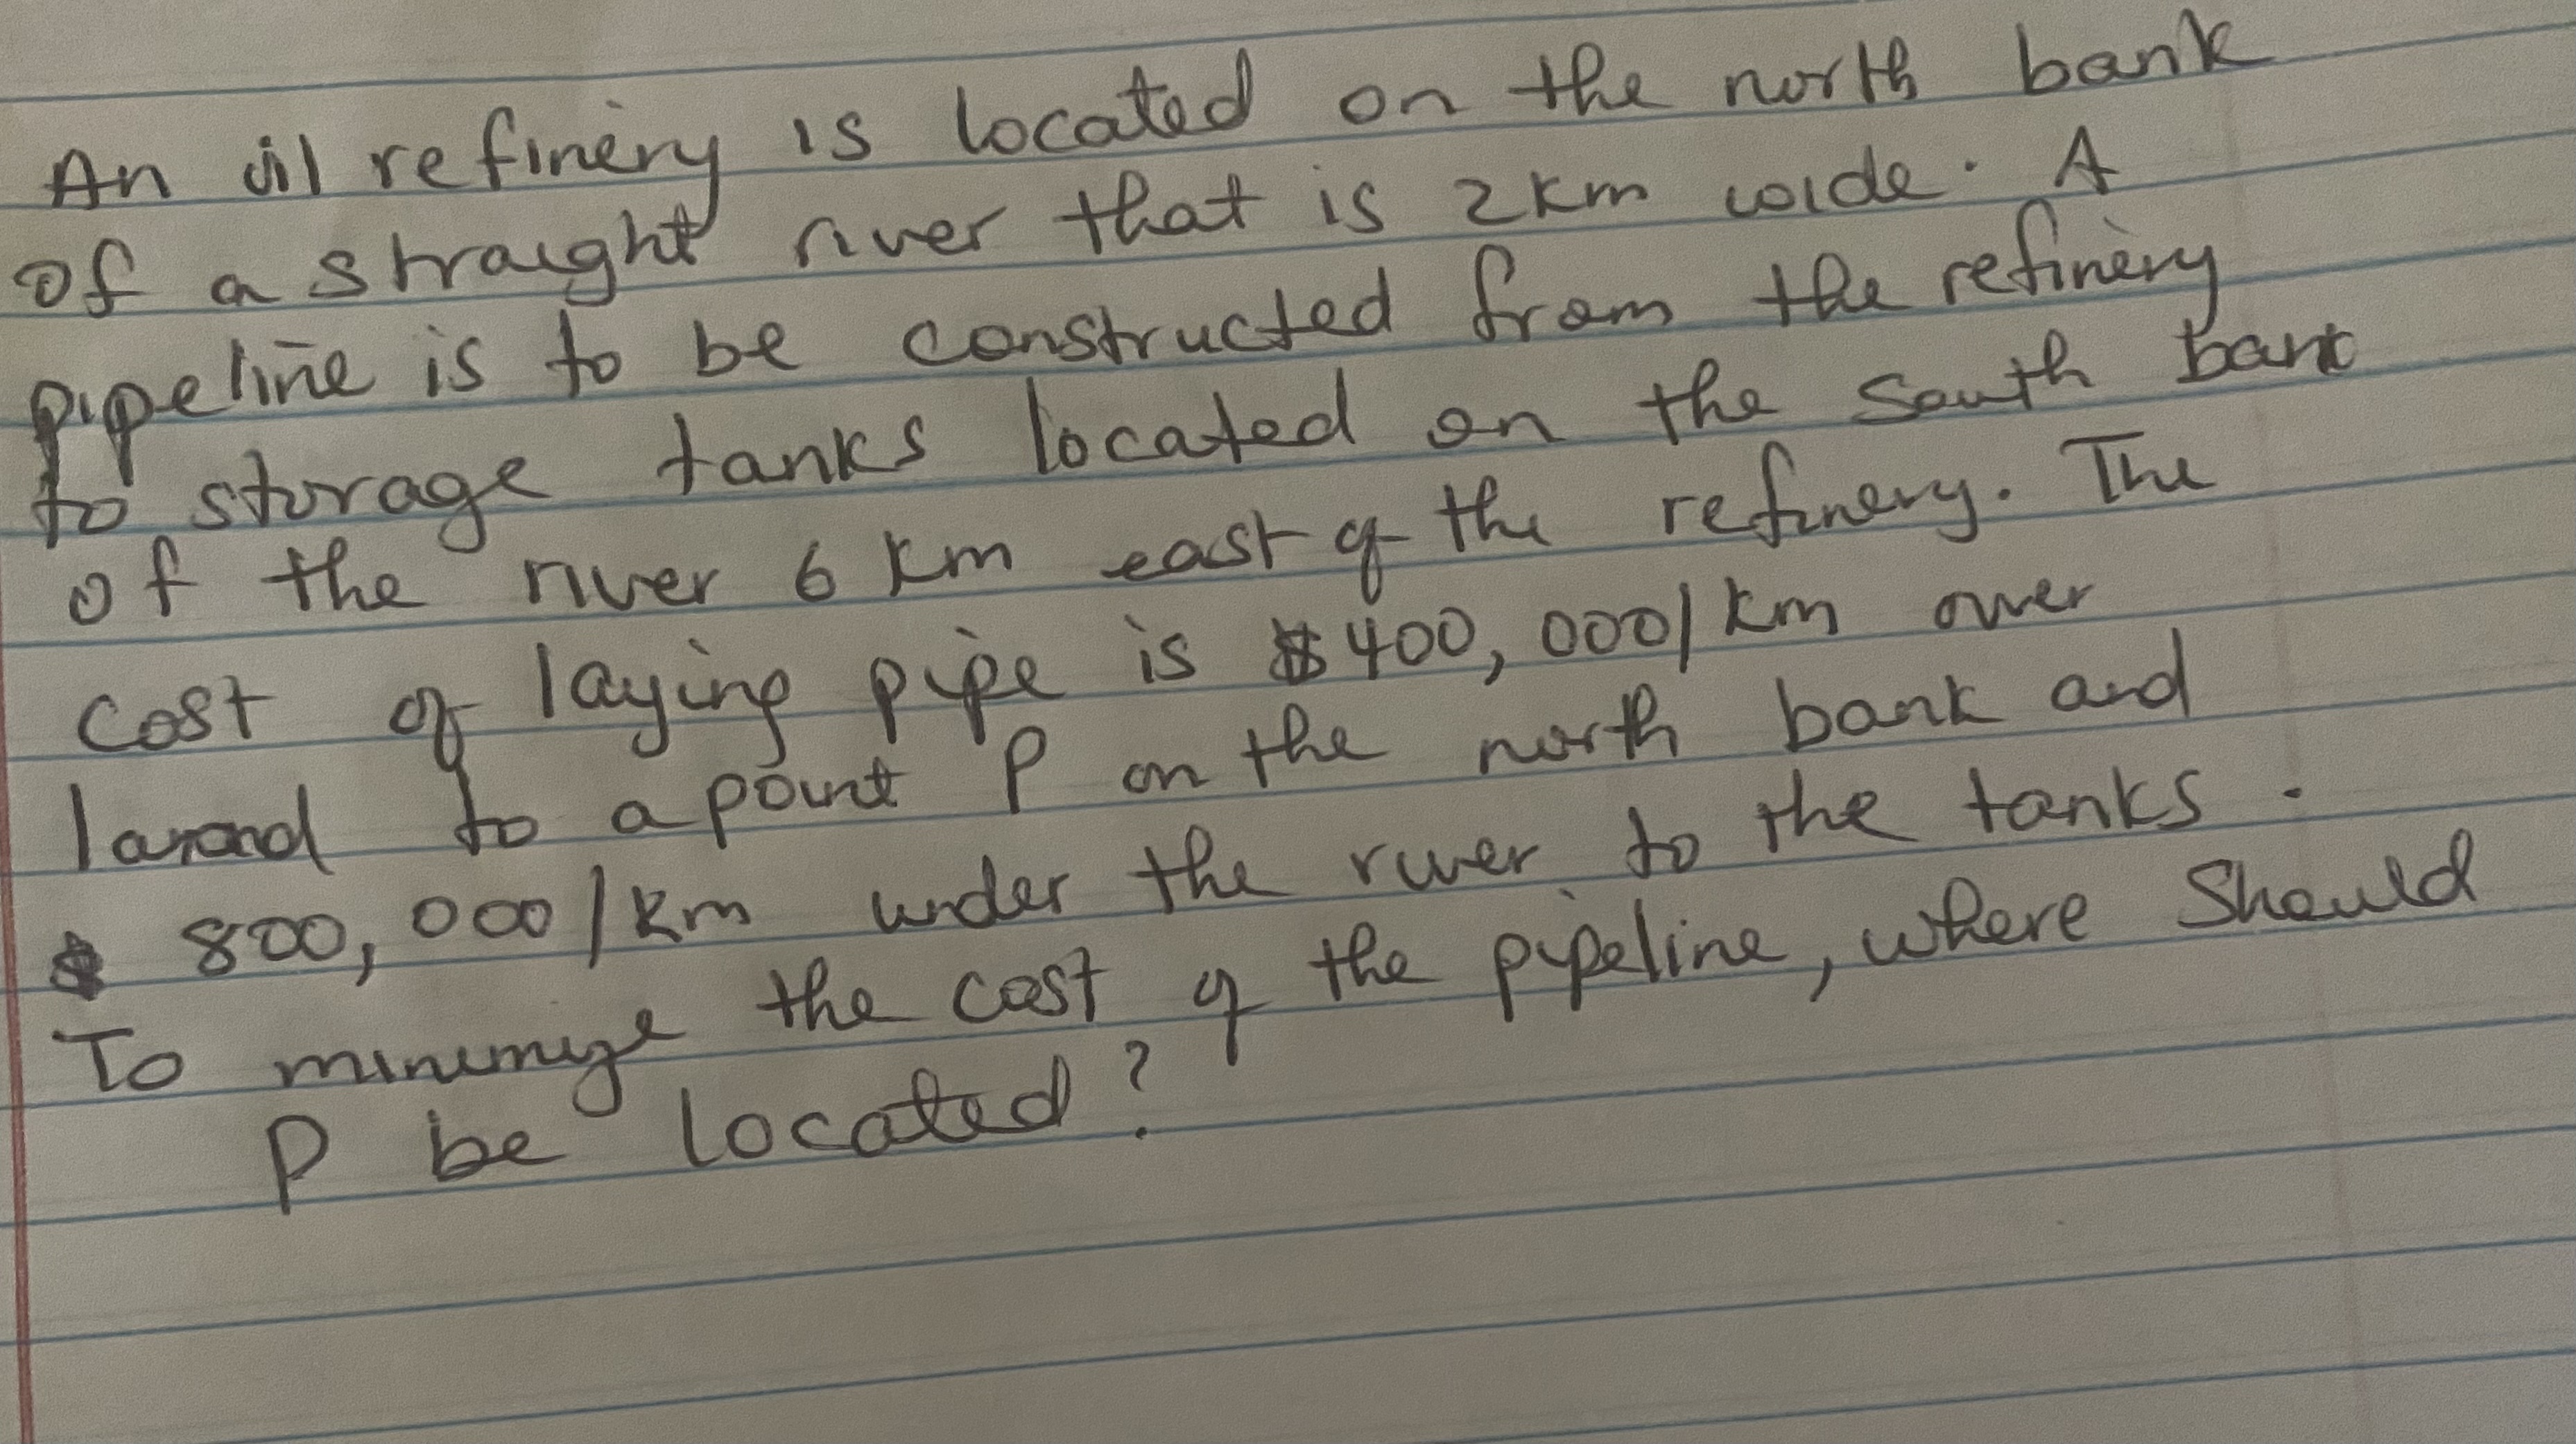 An oil refinery is located on the north bank
of a straight river that is 2 km wide. A
pipeline is to be constructed from the refinery
to storage tanks located on the south bank
of the river 6 km east of the refinery. The
cost of laying pipe is $400,000/km over
land to a point P on the north bank and
$ 800,000/km under the river to the tanks.
To minimize the cost of the pipeline, where should
P be located?